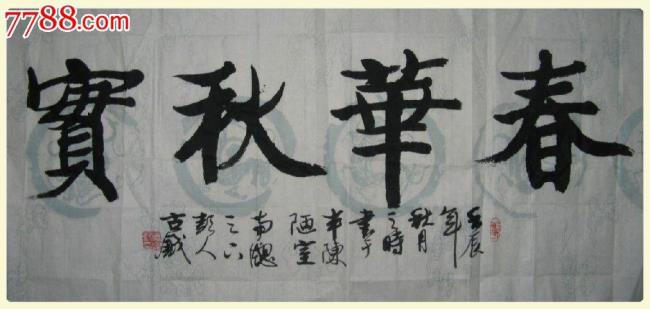 7788.com
春華秋實
壬辰
年
秋月
之時
書于
半陳
陋室
南窗
之下
彭人
古